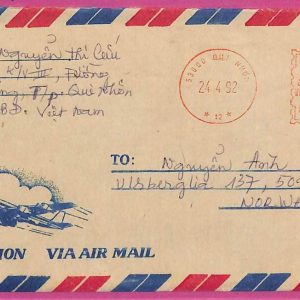 Nguyễn Thị Cẩu
K/V III, Phường
T/p. Quy Nhơn
BĐ. Việt Nam
53000 QUI NHON
24.4.92
* 12 *
TO: Nguyễn Anh
Ulsberglia 137, 509
NORWA
ION VIA AIR MAIL